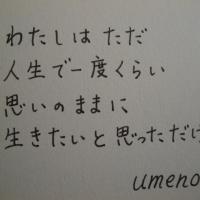 わたしは ただ
人生で一度くらい
思いのままに
生きたいと思っただけ
umeno